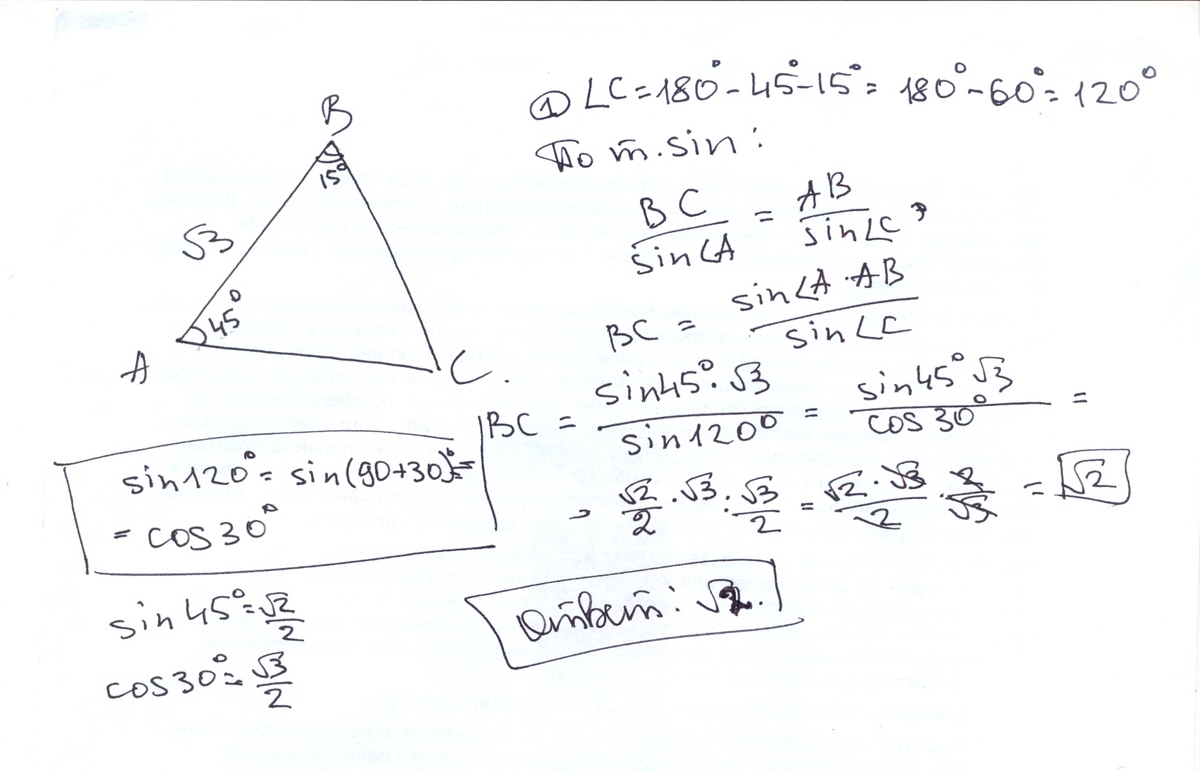 B
15°
√3
45°
A
C
① ∠C=180°-45°-15°= 180°-60°=120°
По т. sin:
BC/sin∠A = AB/sin∠C,
BC = sin∠A·AB/sin∠C
BC = sin45°·√3/sin120° = sin45°√3/cos30° =
→ √2/2 · √3 · √3/2 = √2·√3/2 · 2/√3 = √2
sin120°= sin(90+30)°=
= cos30°
sin45°=√2/2
cos30°=√3/2
Ответ: √2.